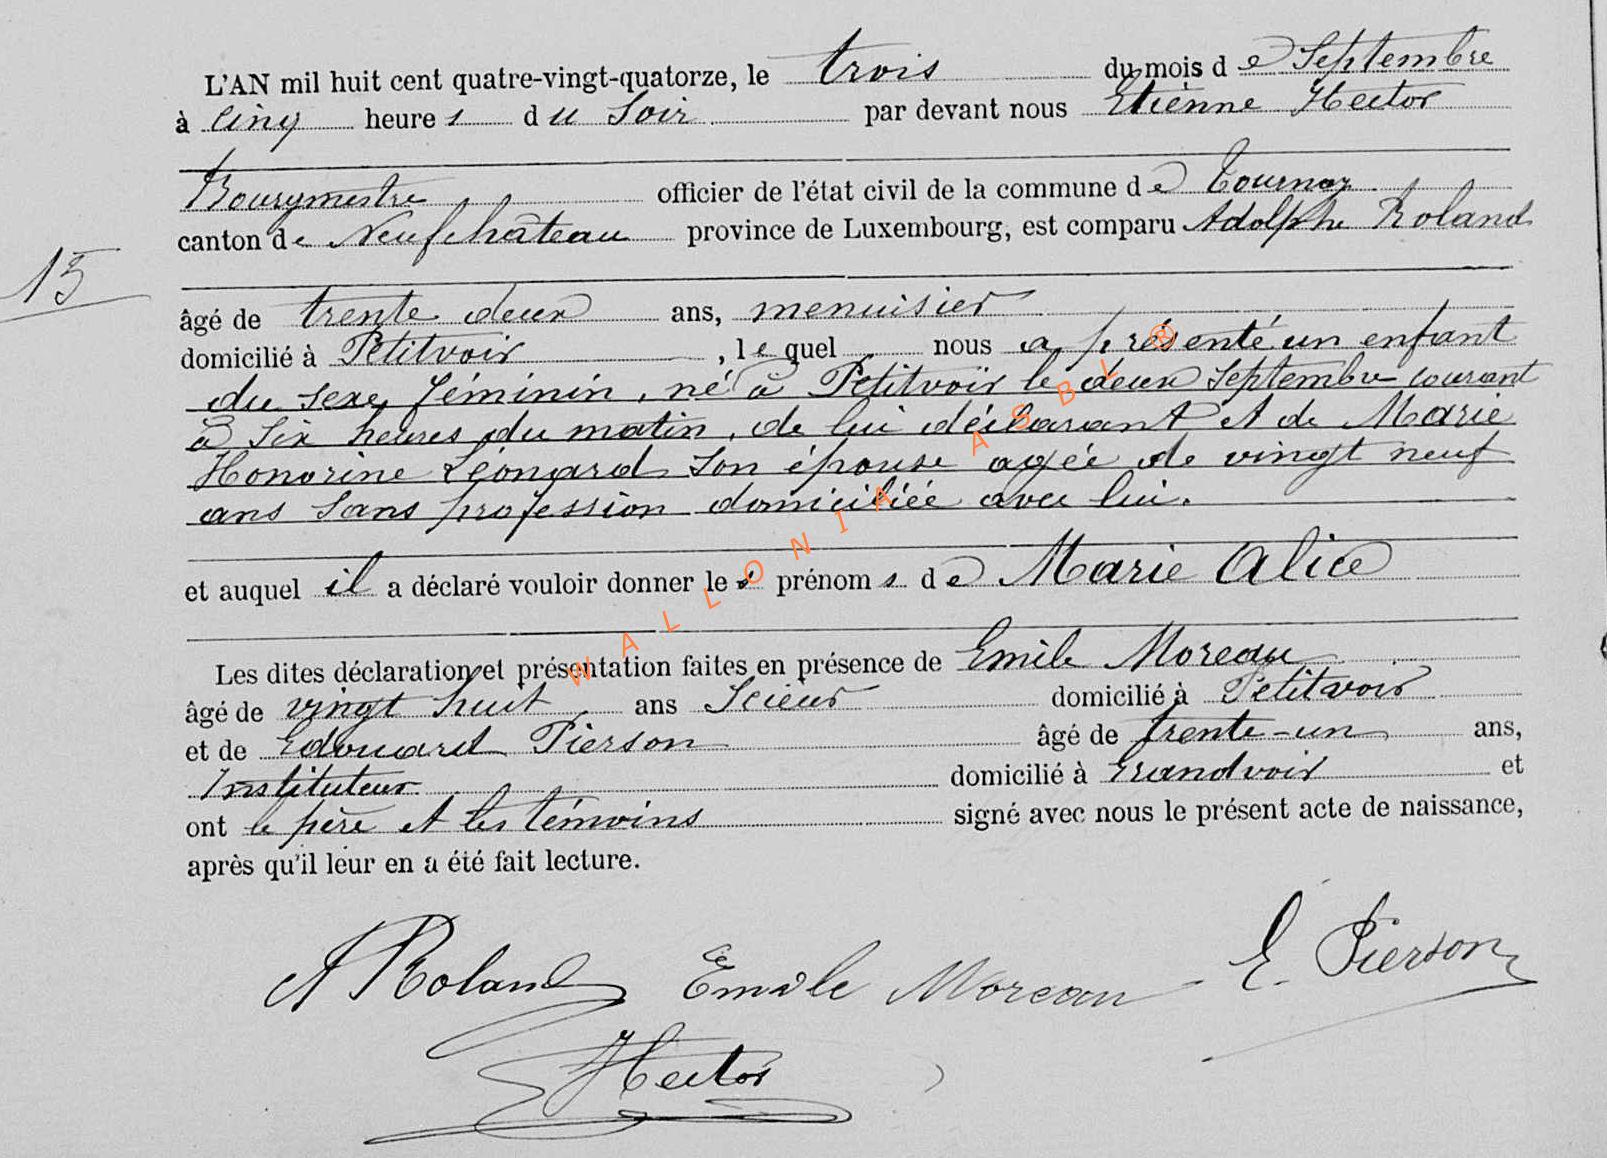 L'AN mil huit cent quatre-vingt-quatorze, le trois du mois de Septembre
à cinq heures du Soir par devant nous Etienne Hector
Bourgmestre officier de l'état civil de la commune de Tournay
canton de Neufchâteau province de Luxembourg, est comparu Adolphe Roland
15
âgé de trente deux ans, menuisier
domicilié à Petitvoir, lequel nous a présenté un enfant
du sexe féminin, né à Petitvoir le deux Septembre courant
à Six heures du matin, de lui déclarant et de Marie
Honorine Léonard son épouse agée de vingt neuf
ans Sans profession domiciliée avec lui.
et auquel il a déclaré vouloir donner les prénoms de Marie Alice
Les dites déclaration et présentation faites en présence de Emile Moreau
âgé de vingt huit ans Scieur domicilié à Petitvoir
et de Edouard Pierson âgé de trente-un ans,
Instituteur domicilié à Grandvoir et
ont le père et les témoins signé avec nous le présent acte de naissance,
après qu'il leur en a été fait lecture.
A Roland Emile Moreau E. Pierson
Hector
WALLONIA ASBL ®